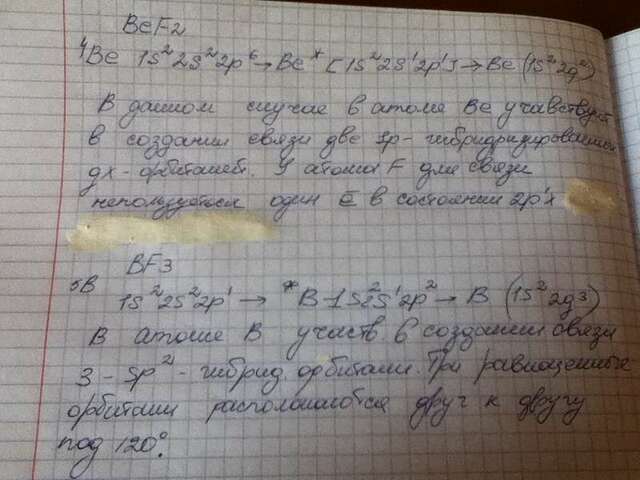 BeF2
4Be 1s² 2s² 2p⁶ → Be* [1s² 2s¹ 2p¹] → Be (1s² 2g²)
В данном случае в атоме Be участвуют
в создании связи две sp-гибридизированных
gx-орбиталей. У атома F для связи
используется один ē в состоянии 2p¹x
BF3
5B 1s² 2s² 2p¹ → *B-1s² 2s¹ 2p² → B (1s² 2g³)
В атоме B участв в создании связи
3-sp²-гибрид орбитали три равноценные
орбитали располагаются друг к другу
под 120°.